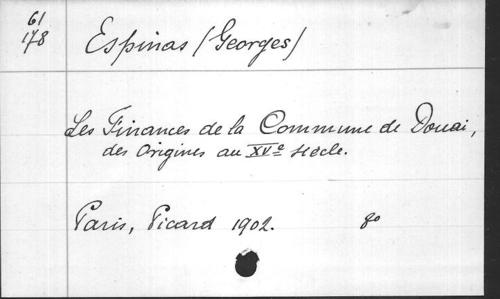 61
178
Espinas (Georges)
Les Finances de la Commune de Douai,
des Origines au XVe siècle.
Paris, Picard 1902. 8o